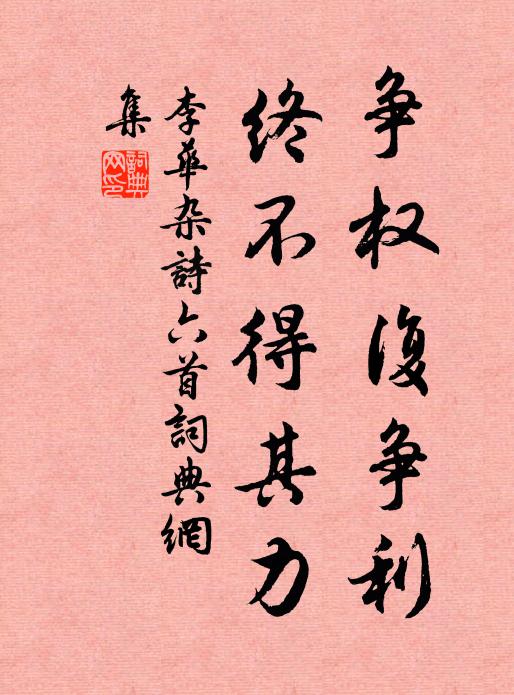 争权復争利
终不得其力
李華杂詩六首詞典網
集
詞典
网印